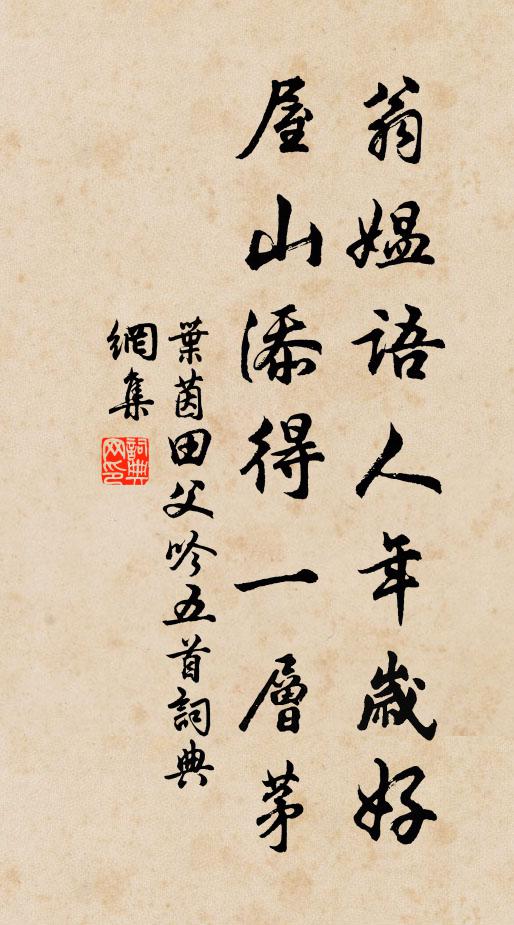 翁媼語人年歲好
屋山添得一層茅
葉茵田父吟五首詞典
網集
詞典网印